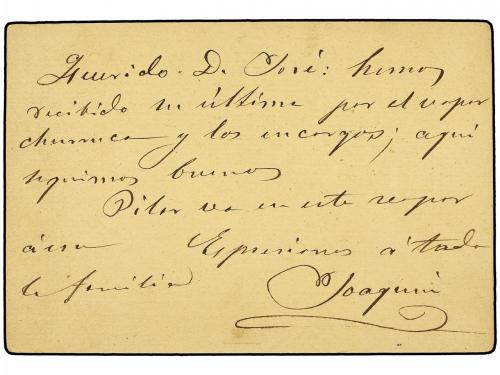 Querido D. José: hemos
recibido tu última por el vapor
churruca y los encargos; aquí
seguimos buenos
Pilar va en este vapor
á esa Espresiones á toda
la familia Joaquin